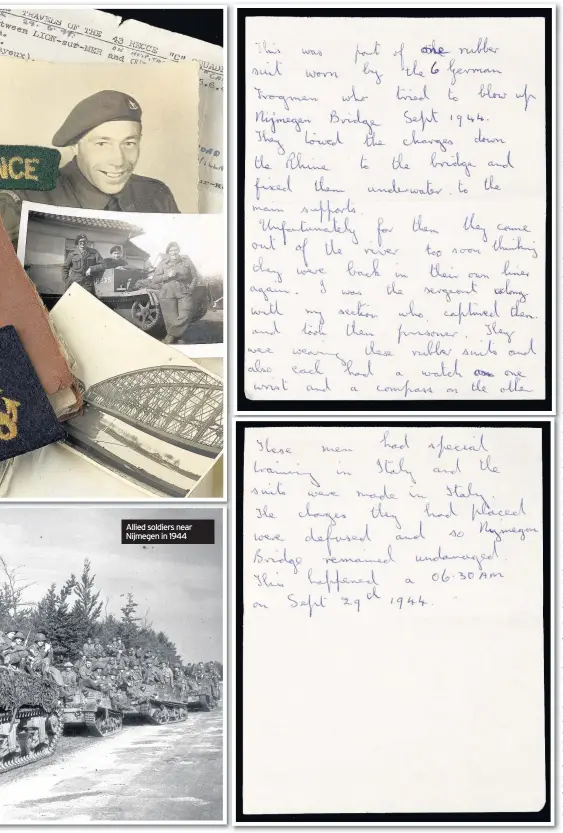 TRAVELS OF THE 43 RECCE "C" SQUADR
between LION-sur-MER and
ayeux).
NCE
Allied soldiers near
Nijmegen in 1944
This was part of one rubber
suit worn by the 6 German
Frogmen who tried to blow up
Nijmegen Bridge Sept 1944.
They towed the charges down
the Rhine to the bridge and
fixed them underwater to the
main supports.
Unfortunately for them they came
out of the river too soon thinking
they were back in their own lines
again. I was the sergeant along
with my section who captured them
and took them prisoner. They
were wearing these rubber suits and
also each had a watch on one
wrist and a compass on the other
These men had special
training in Italy and the
suits were made in Italy.
The charges they had placed
were defused and so Nijmegen
Bridge remained undamaged.
This happened a 06.30 AM
on Sept 29d 1944.